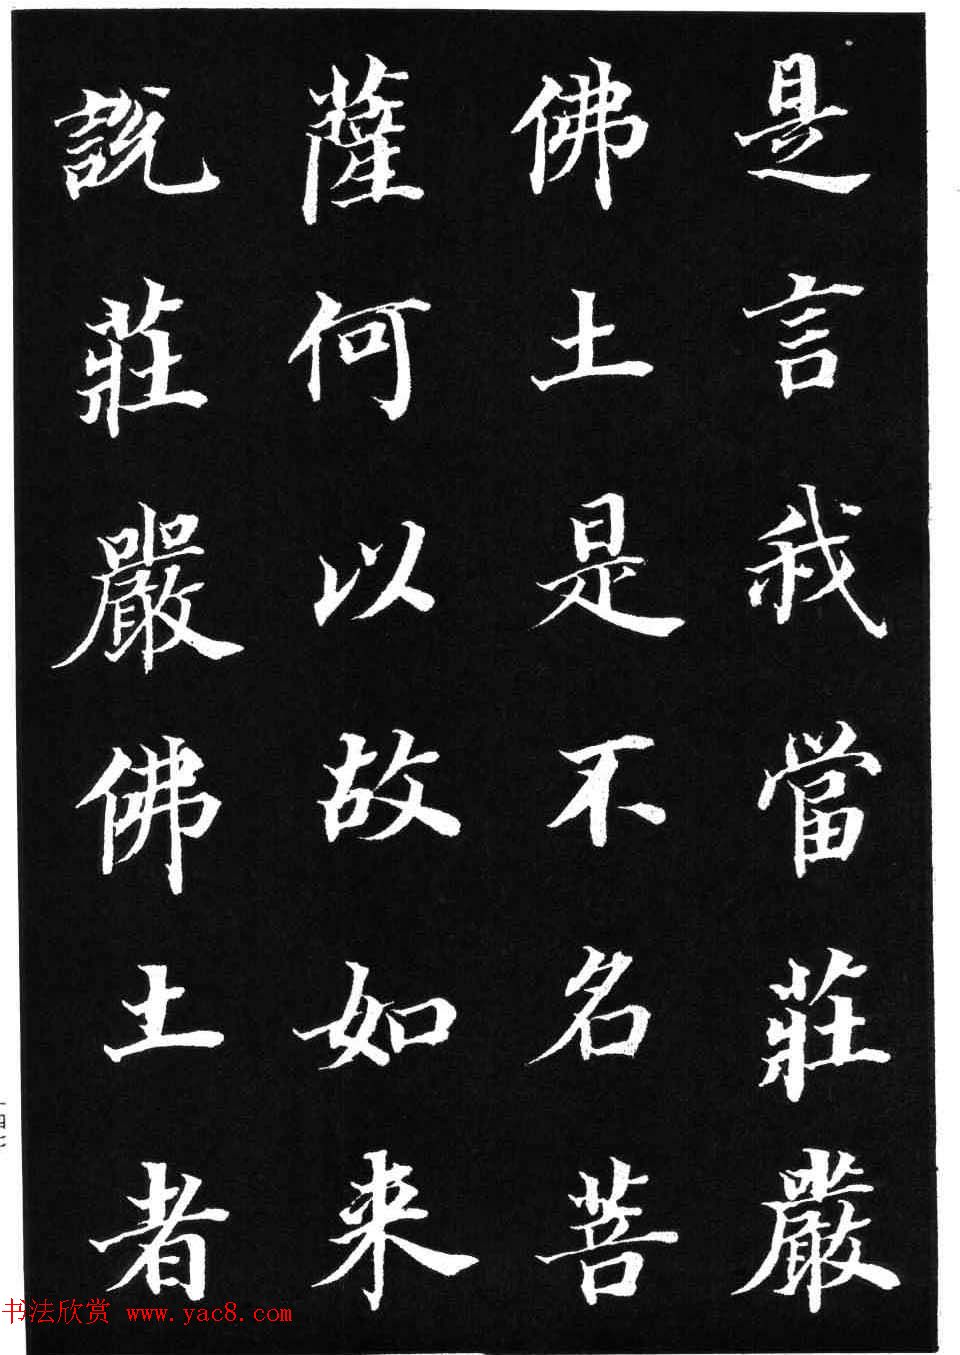 是言我當莊嚴
佛土是不名菩
薩何以故如来
説莊嚴佛土者
一四七
书法欣赏 www.yac8.com